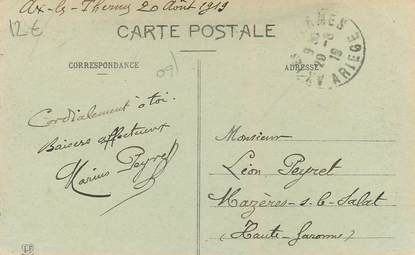 Ax-les-Thermes 20 Août 1919
12€
CARTE POSTALE
CORRESPONDANCE
09
ADRESSE
ARIEGE
Cordialement à toi.
Baisers affectueux
Marius Peyret
Monsieur
Léon Peyret
Mazères-s-le-Salat
(Haute-Garonne)